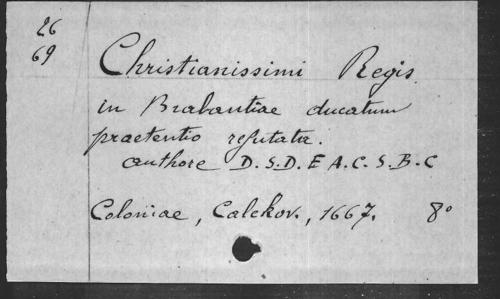 26
69
Christianissimi Regis
in Brabantiae ducatum
praetentio refutata.
authore D.S.D.E A.C.S.B.C
Coloniae, Calckov., 1667. 8º